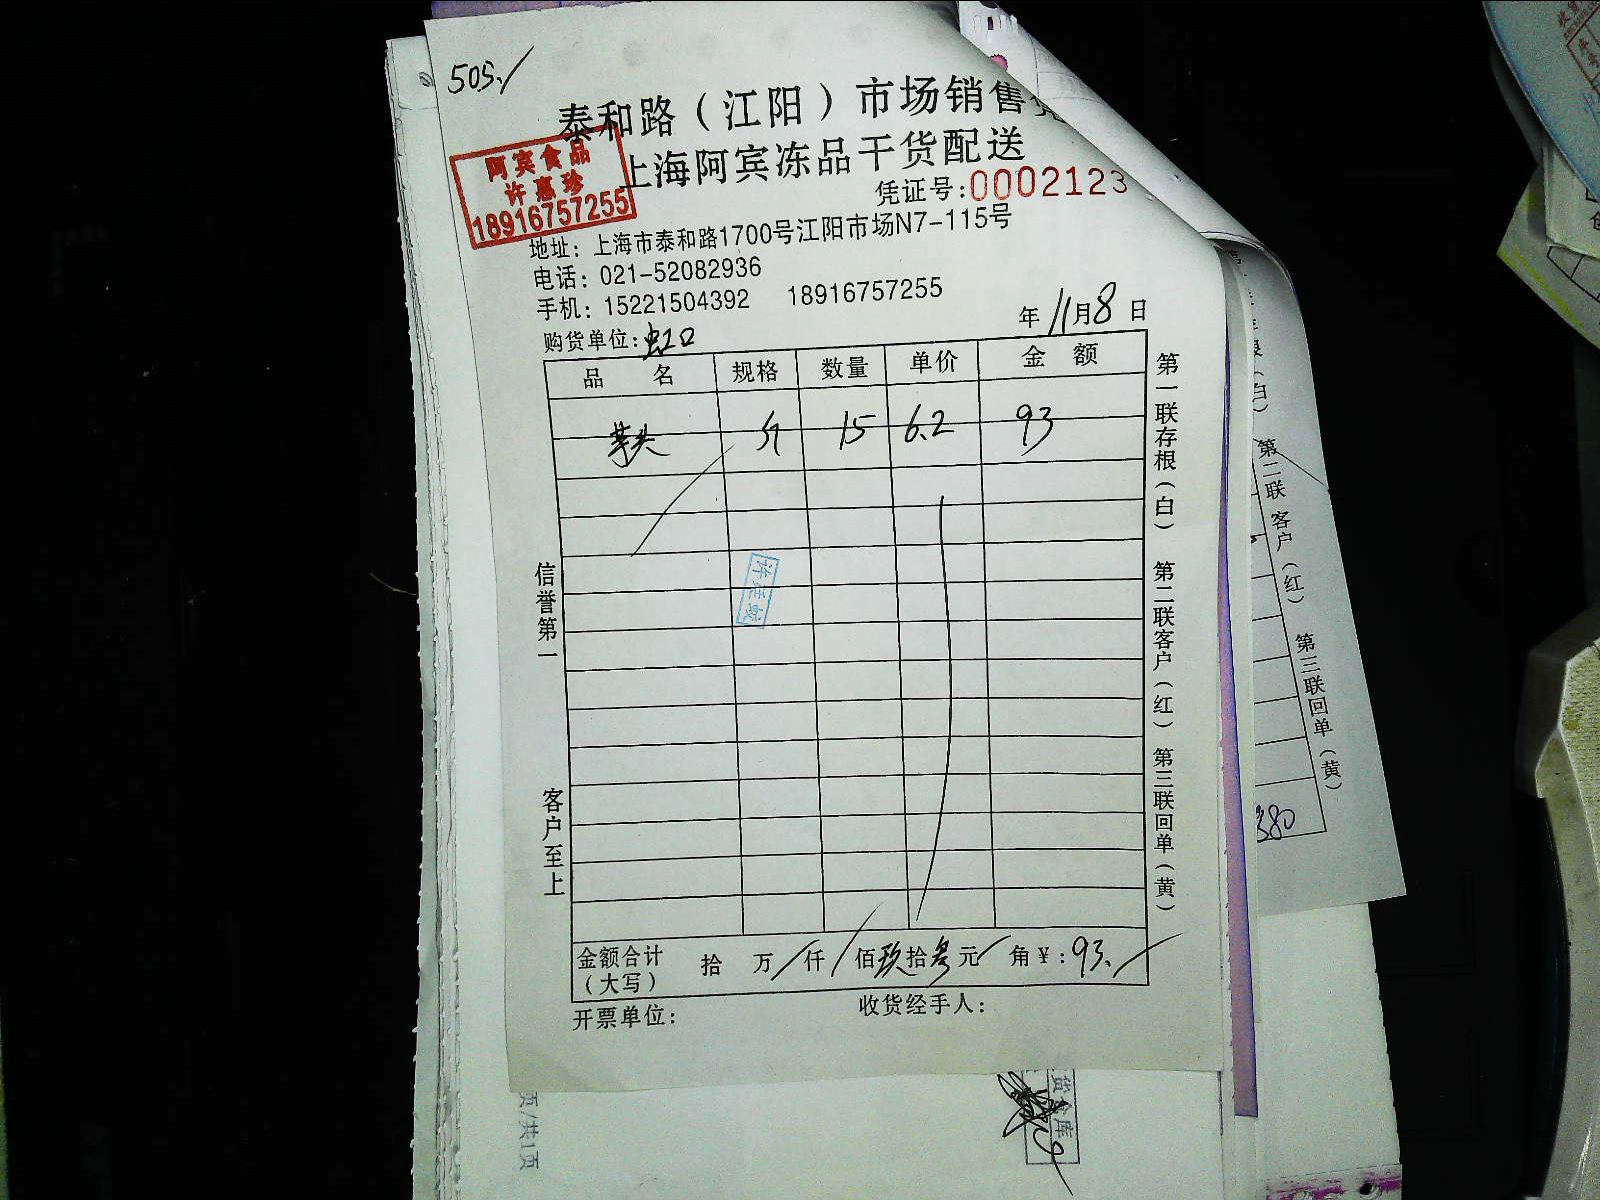 505.
泰和路（江阳）市场销售凭
上海阿宾冻品干货配送
阿宾食品
许惠珍
18916757255
凭证号:0002123
地址：上海市泰和路1700号江阳市场N7-115号
电话：021-52082936
手机：15221504392 18916757255
购货单位：虹口
年 11月8日
品 名 规格 数量 单价 金 额
芋头 斤 15 6.2 93
信誉第一 客户至上
第一联存根（白） 第二联客户（红） 第三联回单（黄）
金额合计（大写） 拾 万 仟 佰玖拾叁元 角￥：93.
开票单位： 收货经手人：
第二联 客户（红） 第三联回单（黄）
380
页/共1页